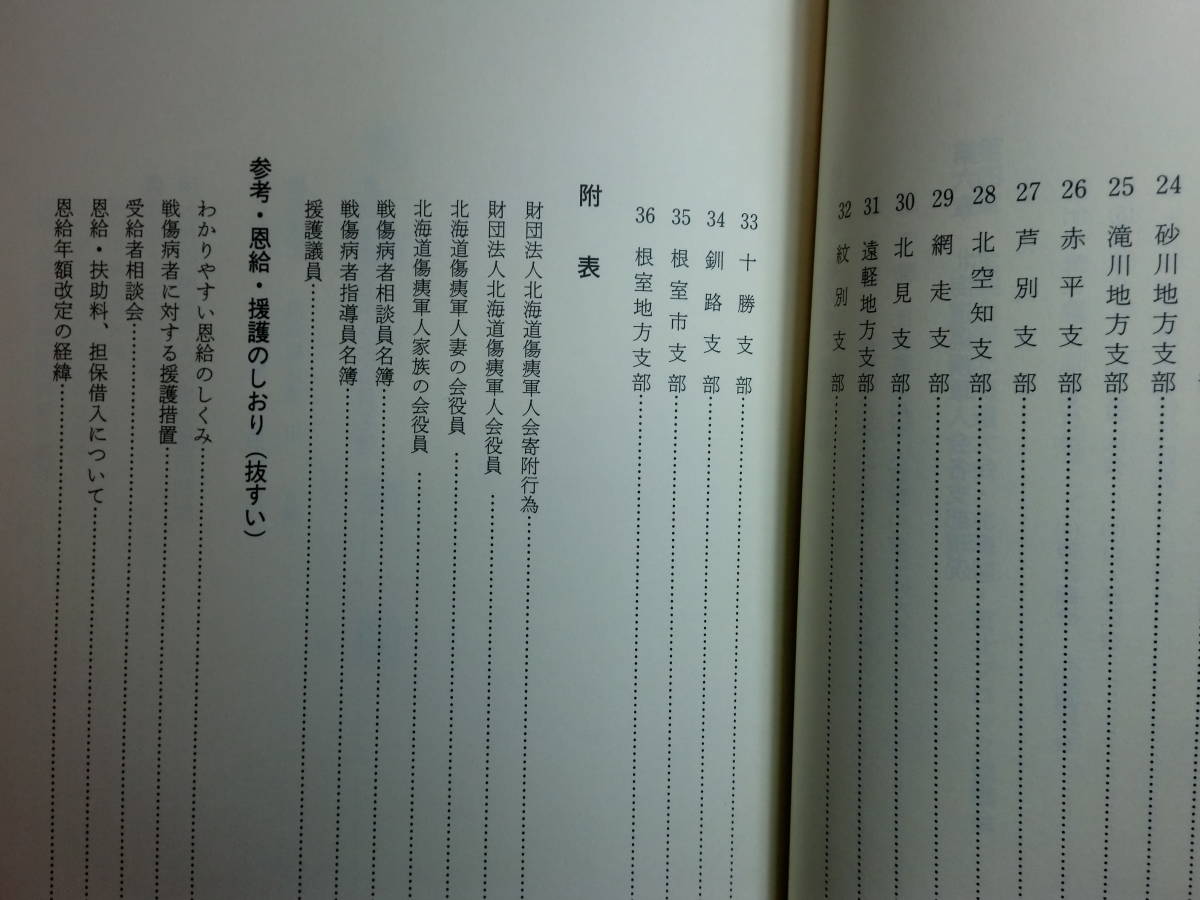 24 砂川地方支部
25 滝川地方支部
26 赤平支部
27 芦別支部
28 北空知支部
29 網走支部
30 北見支部
31 遠軽地方支部
32 紋別支部
33 十勝支部
34 釧路支部
35 根室市支部
36 根室地方支部
附表
財団法人北海道傷痍軍人会寄附行為
財団法人北海道傷痍軍人会役員
北海道傷痍軍人妻の会役員
北海道傷痍軍人家族の会役員
戦傷病者相談員名簿
戦傷病者指導員名簿
援護議員
参考・恩給・援護のしおり（抜すい）
わかりやすい恩給のしくみ
戦傷病者に対する援護措置
受給者相談会
恩給・扶助料、担保借入について
恩給年額改定の経緯